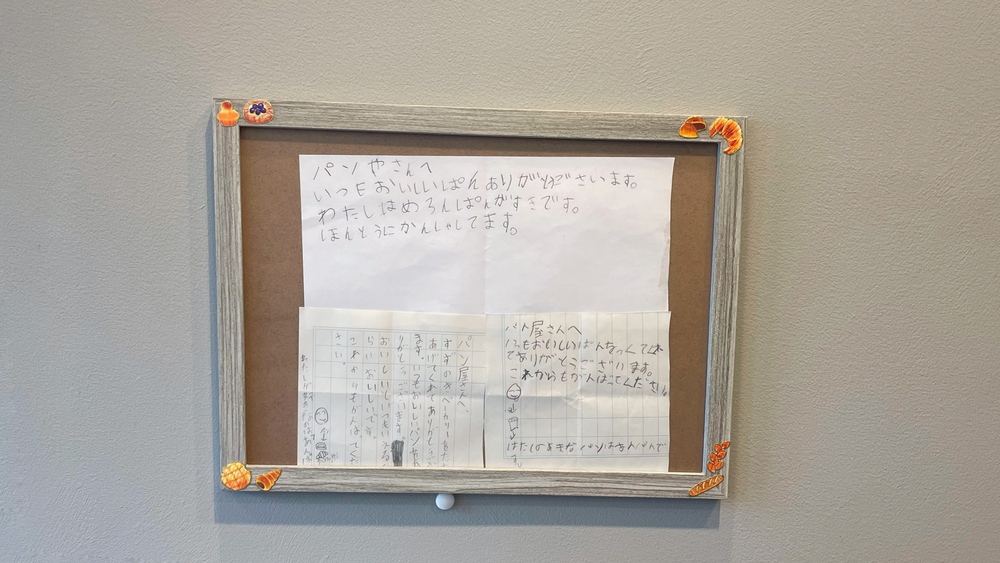 パンやさんへ
いつもおいしいぱんありがとうございます。
わたしはめろんぱんがすきです。
ほんとうにかんしゃしてます。
パン屋さんへ、
すずのきベーカリー
あげてくれてありがとうござい
ます。いつもおいしいパン
りがとうございます
おいしい
らいおいしいです。
これからもがんばってくだ
さい。
パン屋さんへ
いつもおいしいぱんをつくってくれ
てありがとうございます。
これからもがんばってください。
はたしのすきなパンはきんパンで
す。